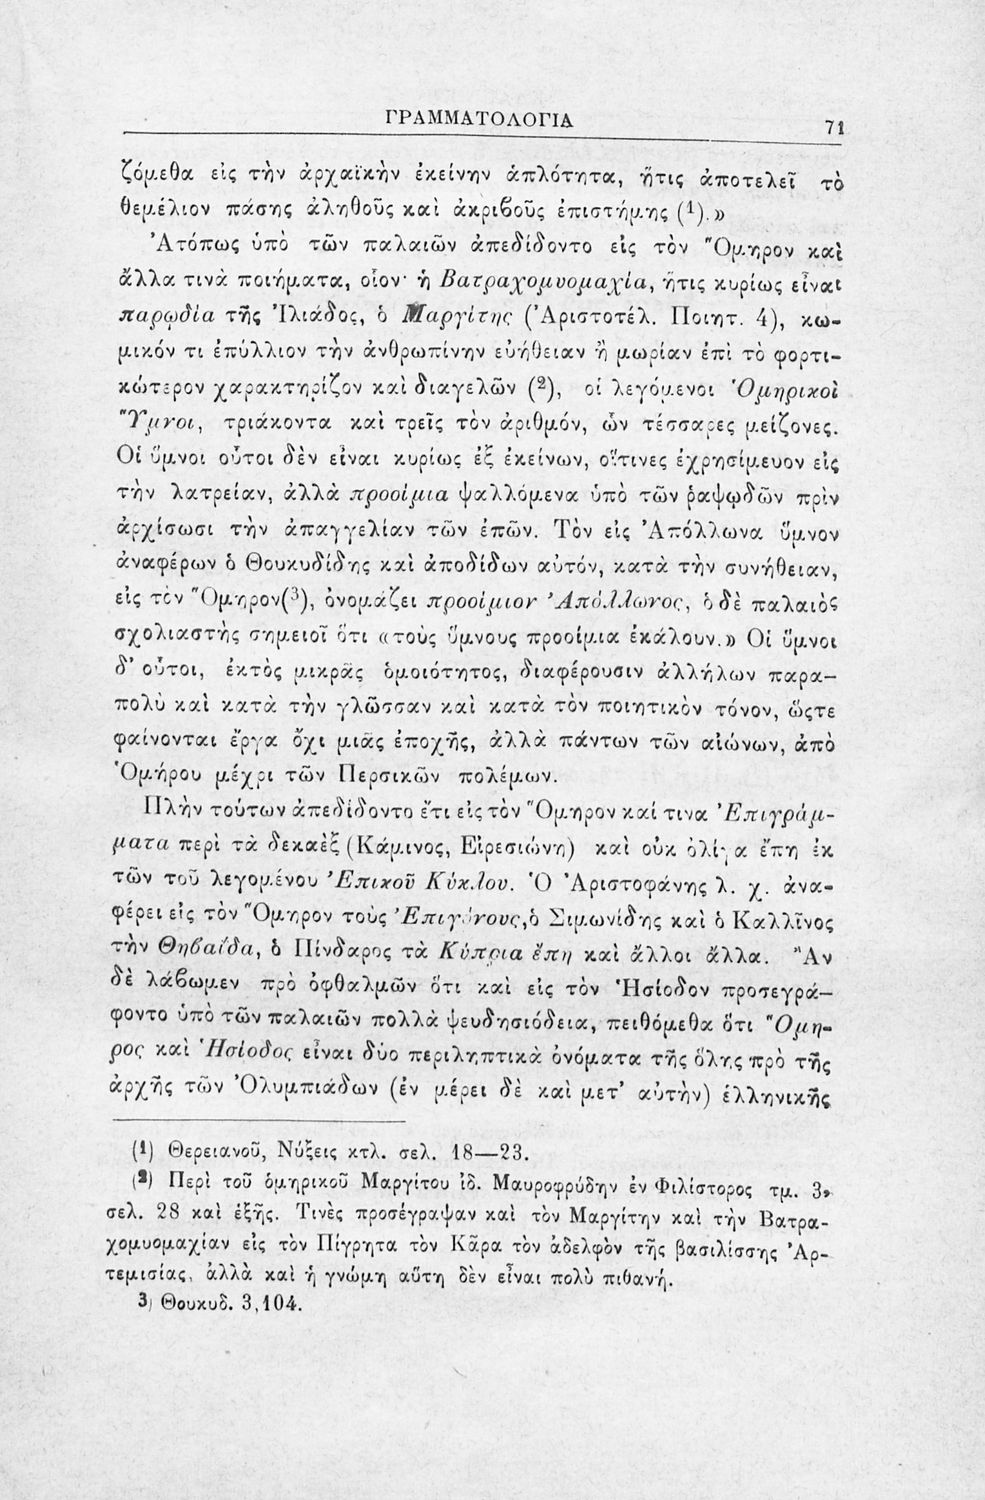 ΓΡΑΜΜΑΤΟΛΟΓΙΑ 71
ζόμεθα εἰς τὴν ἀρχαϊκὴν ἐκείνην ἁπλότητα, ἥτις ἀποτελεῖ τὸ
θεμέλιον πάσης ἀληθοῦς καὶ ἀκριβοῦς ἐπιστήμης (1).»
Ἀτόπως ὑπὸ τῶν παλαιῶν ἀπεδίδοντο εἰς τὸν Ὅμηρον καὶ
ἄλλα τινὰ ποιήματα, οἷον· ἡ Βατραχομυομαχία, ἥτις κυρίως εἶναι
παρῳδία τῆς Ἰλιάδος, ὁ Μαργίτης (Ἀριστοτέλ. Ποιητ. 4), κω-
μικόν τι ἐπύλλιον τὴν ἀνθρωπίνην εὐήθειαν ἢ μωρίαν ἐπὶ τὸ φορτι-
κώτερον χαρακτηρίζον καὶ διαγελῶν (2), οἱ λεγόμενοι Ὁμηρικοὶ
Ὕμνοι, τριάκοντα καὶ τρεῖς τὸν ἀριθμόν, ὧν τέσσαρες μείζονες.
Οἱ ὕμνοι οὗτοι δὲν εἶναι κυρίως ἐξ ἐκείνων, οἵτινες ἐχρησίμευον εἰς
τὴν λατρείαν, ἀλλὰ προοίμια ψαλλόμενα ὑπὸ τῶν ῥαψῳδῶν πρὶν
ἀρχίσωσι τὴν ἀπαγγελίαν τῶν ἐπῶν. Τὸν εἰς Ἀπόλλωνα ὕμνον
ἀναφέρων ὁ Θουκυδίδης καὶ ἀποδίδων αὐτόν, κατὰ τὴν συνήθειαν,
εἰς τὸν Ὅμηρον(3), ὀνομάζει προοίμιον Ἀπόλλωνος, ὁ δὲ παλαιὸς
σχολιαστὴς σημειοῖ ὅτι «τοὺς ὕμνους προοίμια ἐκάλουν.» Οἱ ὕμνοι
δ' οὗτοι, ἐκτὸς μικρᾶς ὁμοιότητος, διαφέρουσιν ἀλλήλων παρα-
πολὺ καὶ κατὰ τὴν γλῶσσαν καὶ κατὰ τὸν ποιητικὸν τόνον, ὥςτε
φαίνονται ἔργα ὄχι μιᾶς ἐποχῆς, ἀλλὰ πάντων τῶν αἰώνων, ἀπὸ
Ὁμήρου μέχρι τῶν Περσικῶν πολέμων.
Πλὴν τούτων ἀπεδίδοντο ἔτι εἰς τὸν Ὅμηρον καί τινα Ἐπιγράμ-
ματα περὶ τὰ δεκαὲξ (Κάμινος, Εἰρεσιώνη) καὶ οὐκ ὀλίγα ἔπη ἐκ
τῶν τοῦ λεγομένου Ἐπικοῦ Κύκλου. Ὁ Ἀριστοφάνης λ. χ. ἀνα-
φέρει εἰς τὸν Ὅμηρον τοὺς Ἐπιγόνους, ὁ Σιμωνίδης καὶ ὁ Καλλῖνος
τὴν Θηβαΐδα, ὁ Πίνδαρος τὰ Κύπρια ἔπη καὶ ἄλλοι ἄλλα. Ἂν
δὲ λάβωμεν πρὸ ὀφθαλμῶν ὅτι καὶ εἰς τὸν Ἡσίοδον προσεγρά-
φοντο ὑπὸ τῶν παλαιῶν πολλὰ ψευδησιόδεια, πειθόμεθα ὅτι Ὅμη-
ρος καὶ Ἡσίοδος εἶναι δύο περιληπτικὰ ὀνόματα τῆς ὅλης πρὸ τῆς
ἀρχῆς τῶν Ὀλυμπιάδων (ἐν μέρει δὲ καὶ μετ' αὐτὴν) ἑλληνικῆς
(1) Θερειανοῦ, Νύξεις κτλ. σελ. 18—23.
(2) Περὶ τοῦ ὁμηρικοῦ Μαργίτου ἰδ. Μαυροφρύδην ἐν Φιλίστορος τμ. 3,
σελ. 28 καὶ ἑξῆς. Τινὲς προσέγραψαν καὶ τὸν Μαργίτην καὶ τὴν Βατρα-
χομυομαχίαν εἰς τὸν Πίγρητα τὸν Κᾶρα τὸν ἀδελφὸν τῆς βασιλίσσης Ἀρ-
τεμισίας, ἀλλὰ καὶ ἡ γνώμη αὕτη δὲν εἶναι πολὺ πιθανή.
3) Θουκυδ. 3,104.